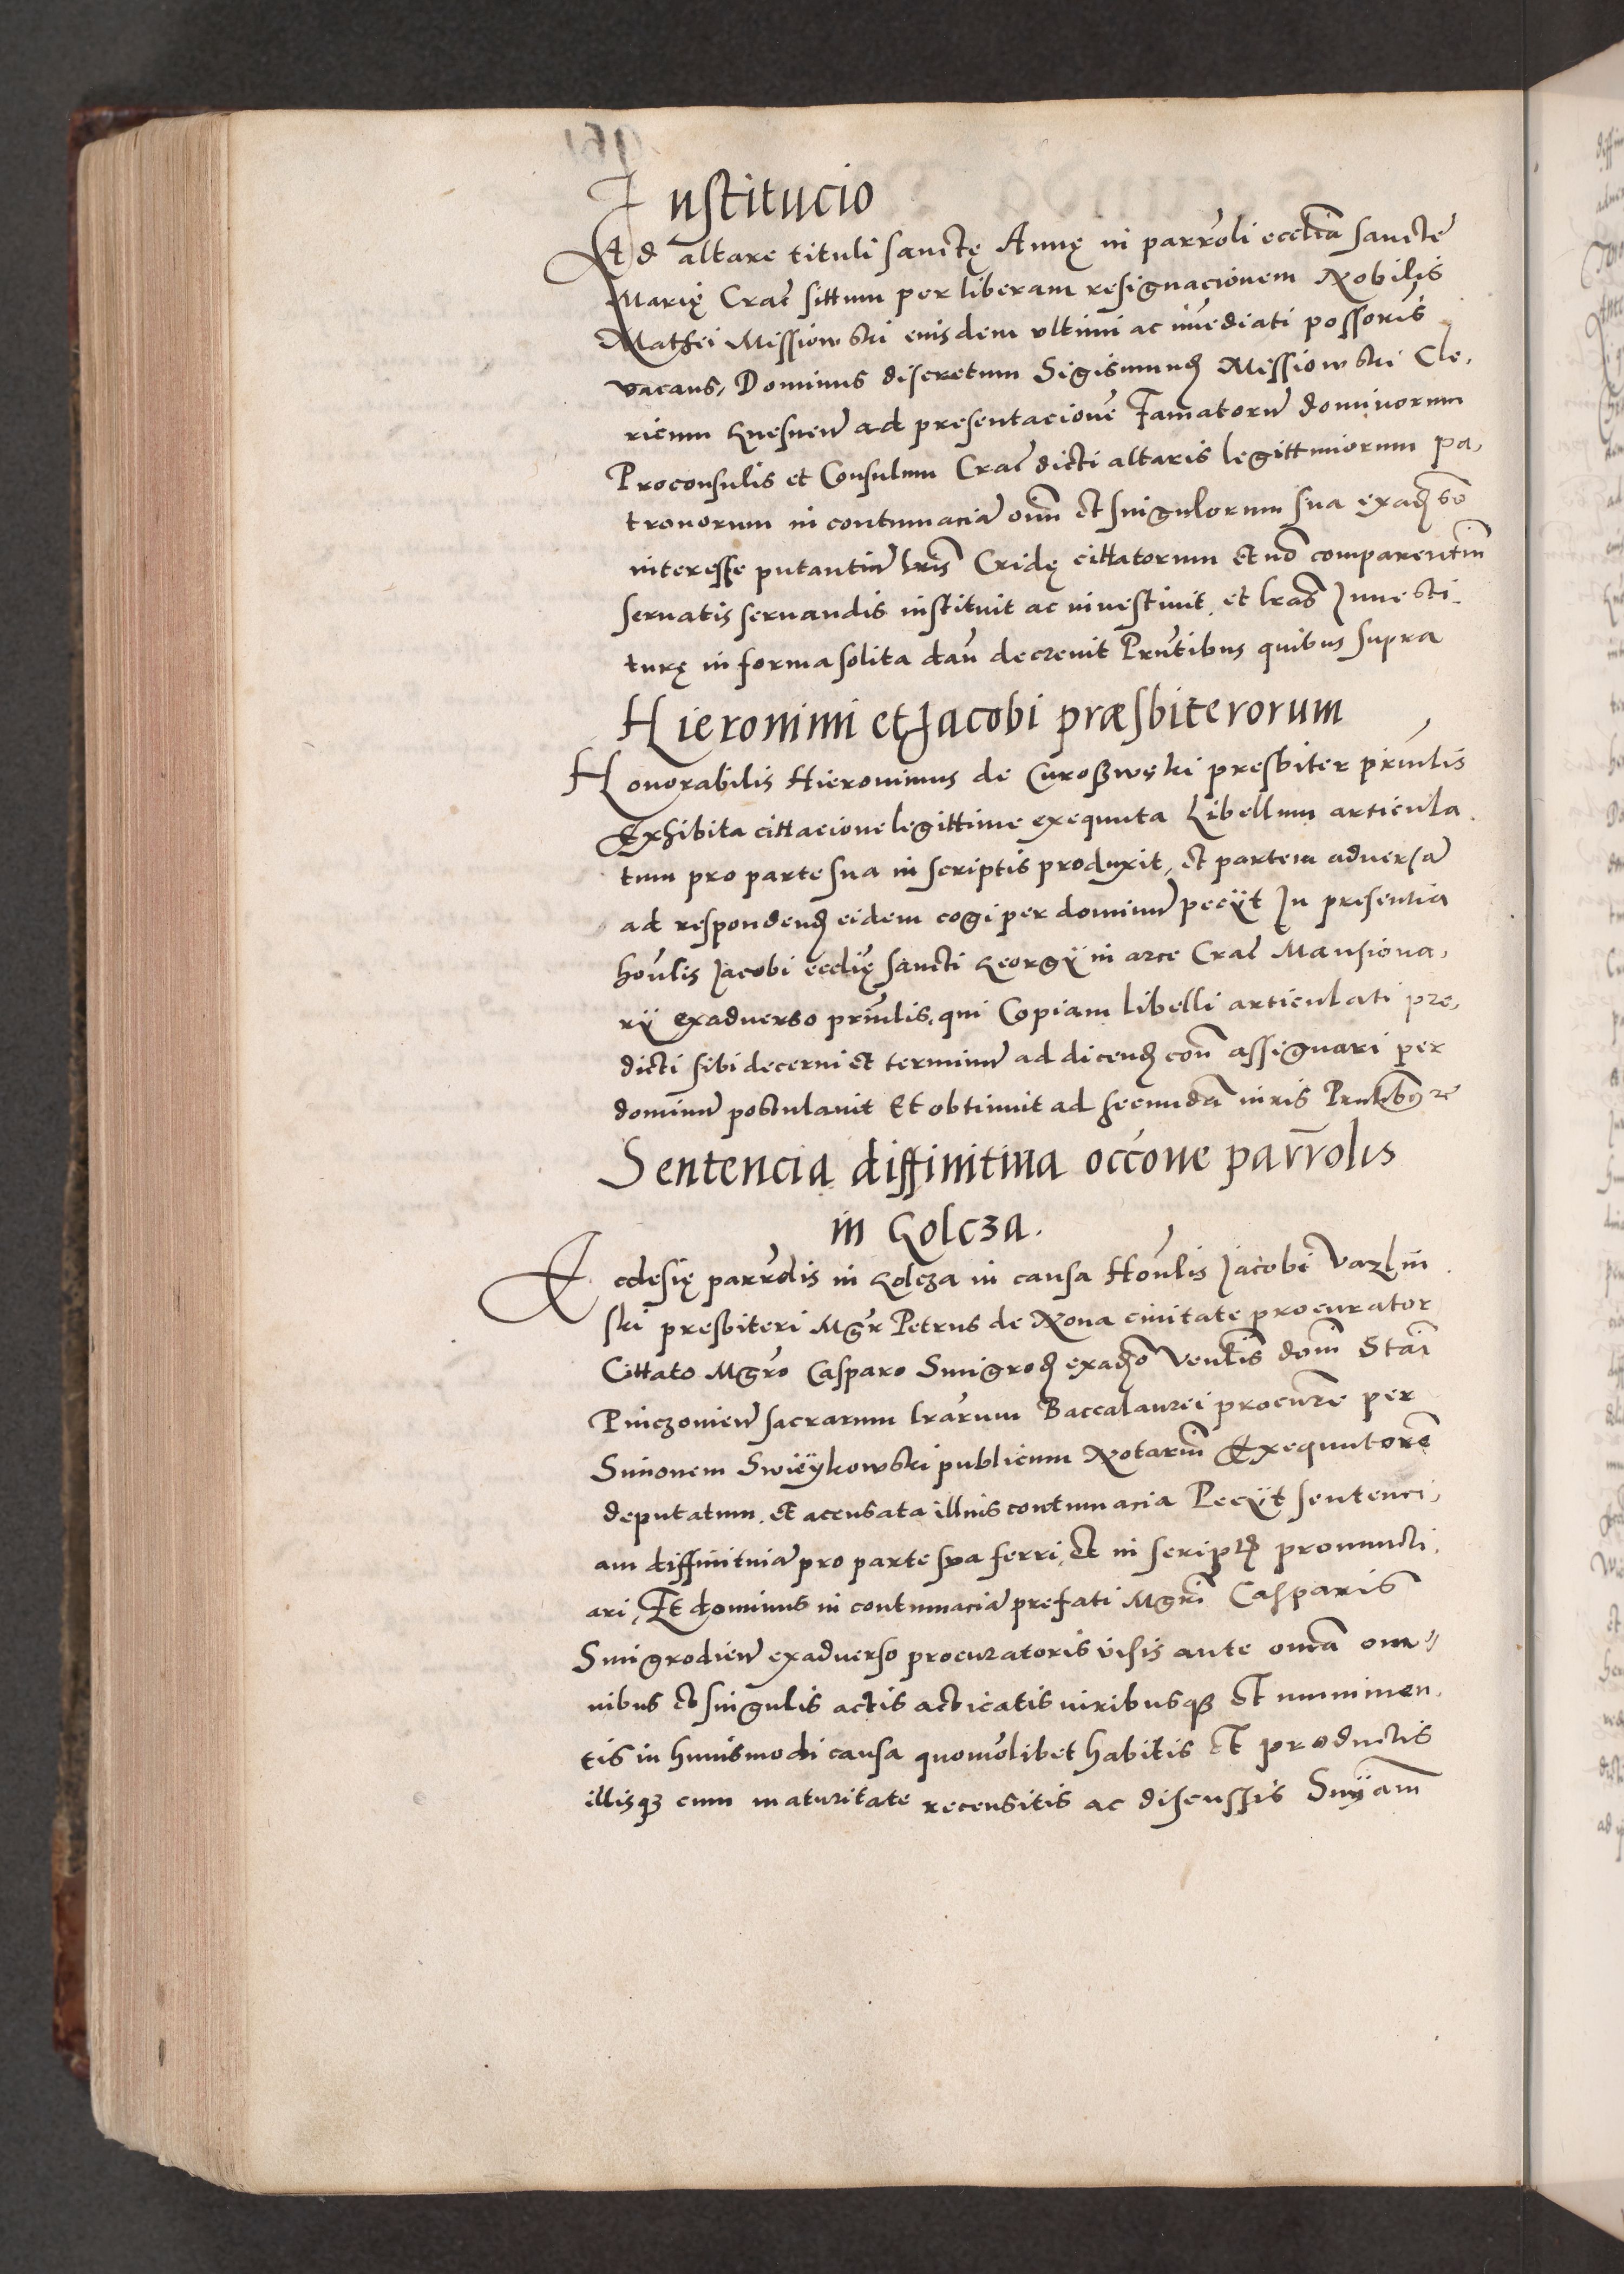 Institucio
Ad altare tituli sanctę Annę in parrōli ecclīa sanctę
Marię Crac̄ sittum per liberam resignacionem Nobilis
Mathei Missiowski eiusdem ultimi ac im̄ediati possoris
vacans, Dominus discretum Sigismund Missiowski Cle,
ricum Gnesnen̄ ad presentacionē Famatorum̄ dominorum
Proconsulis et Consulum Crac̄ dicti altaris legittimorum pa,
tronorum in contumaciā om̄ et singulorum sua exad so
interesse putantiū lr̄is Cridę cittatorum et nō comparentiū
servatis servandis instituit ac investivit, et lrās Investi-
turę in forma solita dan̄ decrevit Prn̄tibus quibus supra
Hieronimi et Jacobi præsbiterorum
Honorabilis Hieronimus de Curoßwęki presbiter prin̄lis
Exhibita cittacione legittime exequuta Libellum articula
tum pro parte sua in scriptis produxit, et partem adversā
ad respondend eidem cogi per dominū peciit In presentia
hon̄lis Jacobi ecclię sancti Georgÿ in arce Crac̄ Mansiona,
rÿ exadverso prin̄lis, qui Copiam libelli articulati pre,
dicti sibi decerni et terminū ad dicend con̄ assignari per
dominū postulavit Et obtinuit ad secundā iuris
Sentencia diffinitiva occōne parrōlis
in Golcza.
Ecclesię parrōlis in Golcza in causa Hon̄lis Jacobi Vazlin
ski presbiteri Mgr̄ Petrus de Nova civitate procurator
Cittato Mgrō Casparo Smigrod exadso Ven̄lis dom̄ Stai
Pinczovien̄ sacrarum lrārum Baccalaurei procurē per
Simonem Swieÿkowski publicum Notariū Exequutorē
deputatum, et accusata illius contumacia Peciit sentenci,
am diffinitivā pro parte sua ferri, et in script pronuncti,
ari, Et dominus in contumaciā prefati Mgrī Casparis
Smigrodien̄ exadverso procuratoris visis ante omīa om"
nibus et singulis actis acticatis iuribusqȝ et munimen,
tis in huiusmodi causa quomōlibet habitis et productis
illisqȝ cum maturitate recensitis ac discussis Snÿam̄